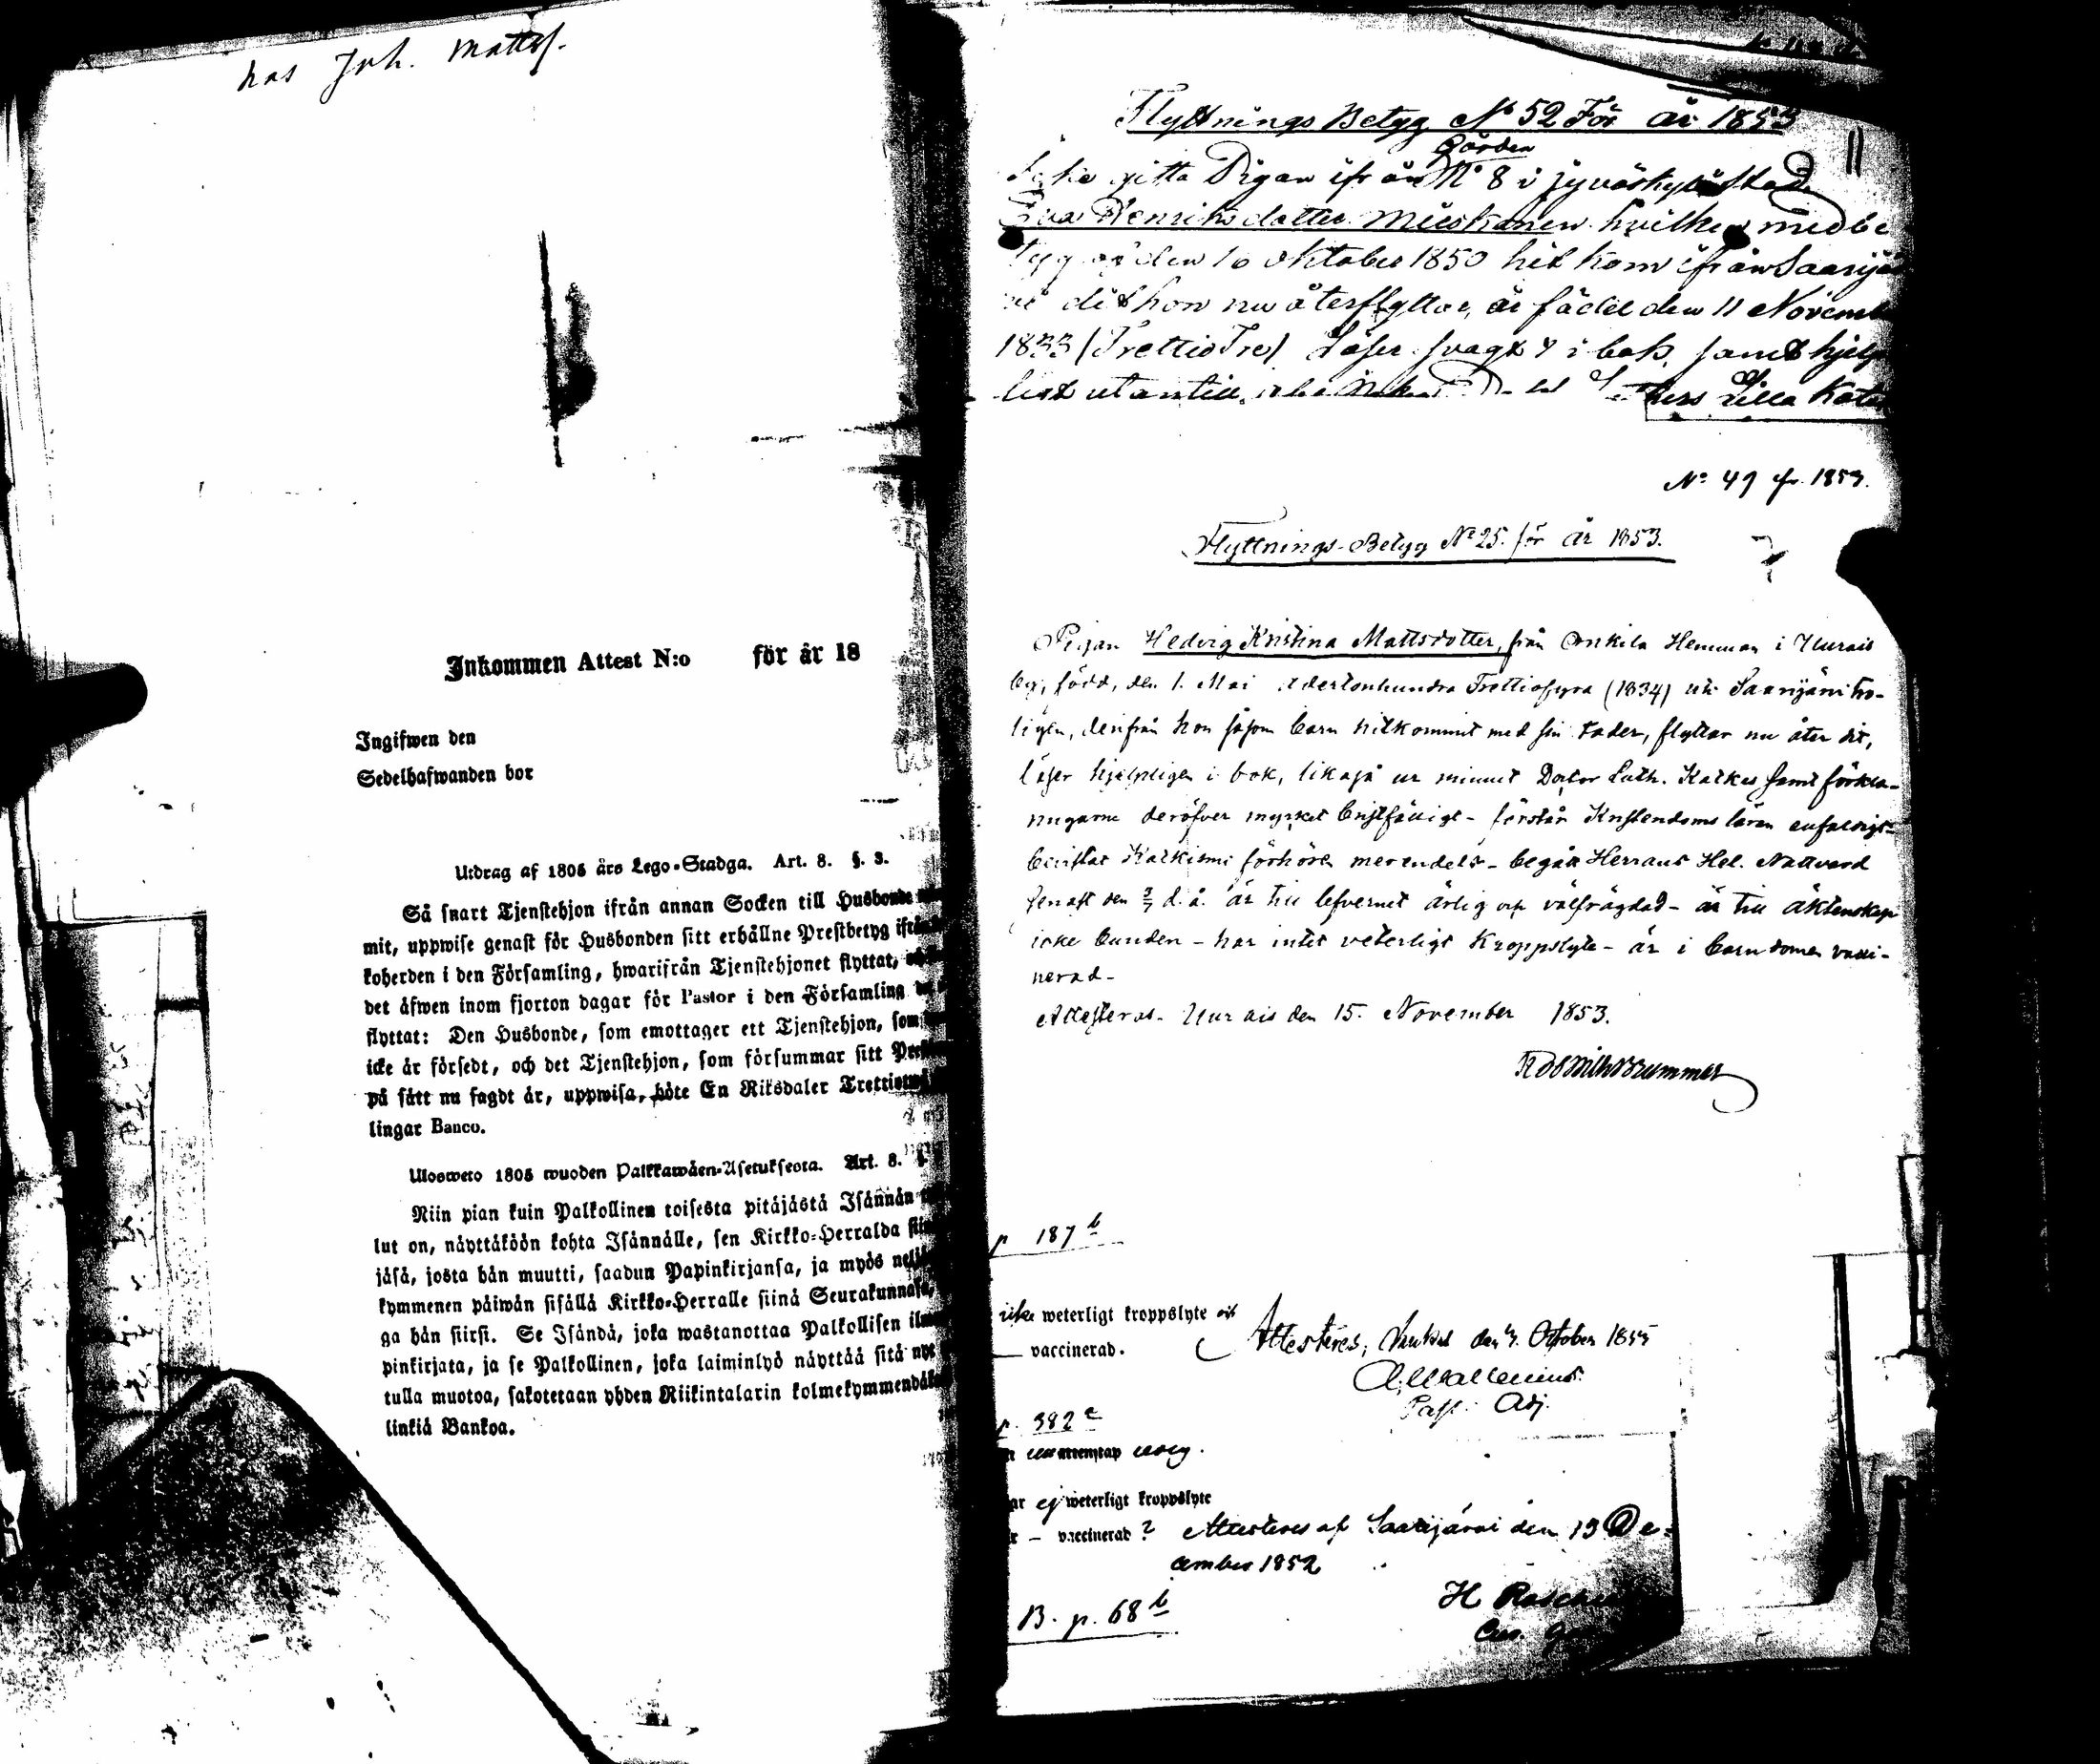 hos Joh. Matts.
Inkommen Attest N:o för år 18
Ingifwen den
Sedelhafwanden bor
Utdrag af 1805 års Lego-Stadga. Art. 8. §. 3.
Så snart Tjenstehjon ifrån annan Socken till Husbonde
mit, uppwise genast för Husbonden sitt erhållne Prestbetyg
koherden i den Församling, hwarifrån Tjenstehjonet flyttat,
det äfwen inom fjorton dagar för Pastor i den Församling
flyttat: Den Husbonde, som emottager ett Tjenstehjon, som
icke är försedt, och det Tjenstehjon, som försummar sitt
på sätt nu sagdt är, uppwisa, böte En Riksdaler
lingar Banco.
Ulosweto 1805 wuoden Palkkawäen-Asetuksesta. Art. 8.
Niin pian kuin Palkollinen toisesta pitäjästä Isännän
lut on, näyttäköön kohta Isännälle, sen Kirkko-Herralda
jäsä, josta hän muutti, saadun Papinkirjansa, ja myös
kymmenen päiwän sisällä Kirkko-Herralle siinä Seurakunnasa,
ga hän siirsi. Se Isändä, joka wastanottaa Palkollisen
pinkirjata, ja se Palkollinen, joka laiminlyö näyttää sitä
tulla muotoa, sakotetaan yhden Riikintalarin
linkiä Bankoa.
Flyttnings Betyg No 52 För år 1853
Gården
gitta Pigan ifrån No 8 i Jyväskylä Stad
Eva Henriksdotter Muskanen hvilken med be
den 16 Oktober 1850 hit kom ifrån Saarijär
dit hon nu återflyttar, är född den 11 Novemb
1833 (TrettioTre) Läser svagt i bok, samt hjelp
ligt utantill Lilla Kate
No 49 fr. 1853.
Flyttnings-Betyg No 25. för år 1853.
Pigan Hedvig Kristina Mattsdotter, från Onkila Hemman i Uurais
by, född, den 1. Mai Adertonhundra Trettiofyra (1834) uti Saarijärvi tro-
ligen, derifrån hon såsom barn hitkommit med sin Fader, flyttar nu åter dit,
läser hjelpligen i bok, likaså ur minnet Doctor Luth. Katkes samt förkla-
ringarne deröfver mycket bristfälligt - förstår Kristendoms läran enfaldigt -
bevistar Katkismi förhören merendels - begått Herrans Hel. Nattvard
senast den 3/7 d. å. är till lefvernet ärlig och välfrägdad - är till äktenskap
icke bunden - har intet veterligt Kroppslyte - är i barndomen vacci-
nerad -
Attesteras. Uurais den 15. November 1853.
p 187 b
icke weterligt kroppslyte och
vaccinerad. Attesteres, den 4. October 1855
A. Wallenius.
Past. Adj.
p. 382 c
ledig.
ar ej weterligt kroppslyte
– vaccinerad ? Attesteres af Saarijärvi den 13 De-
cember 1852
H
B. p. 68 b